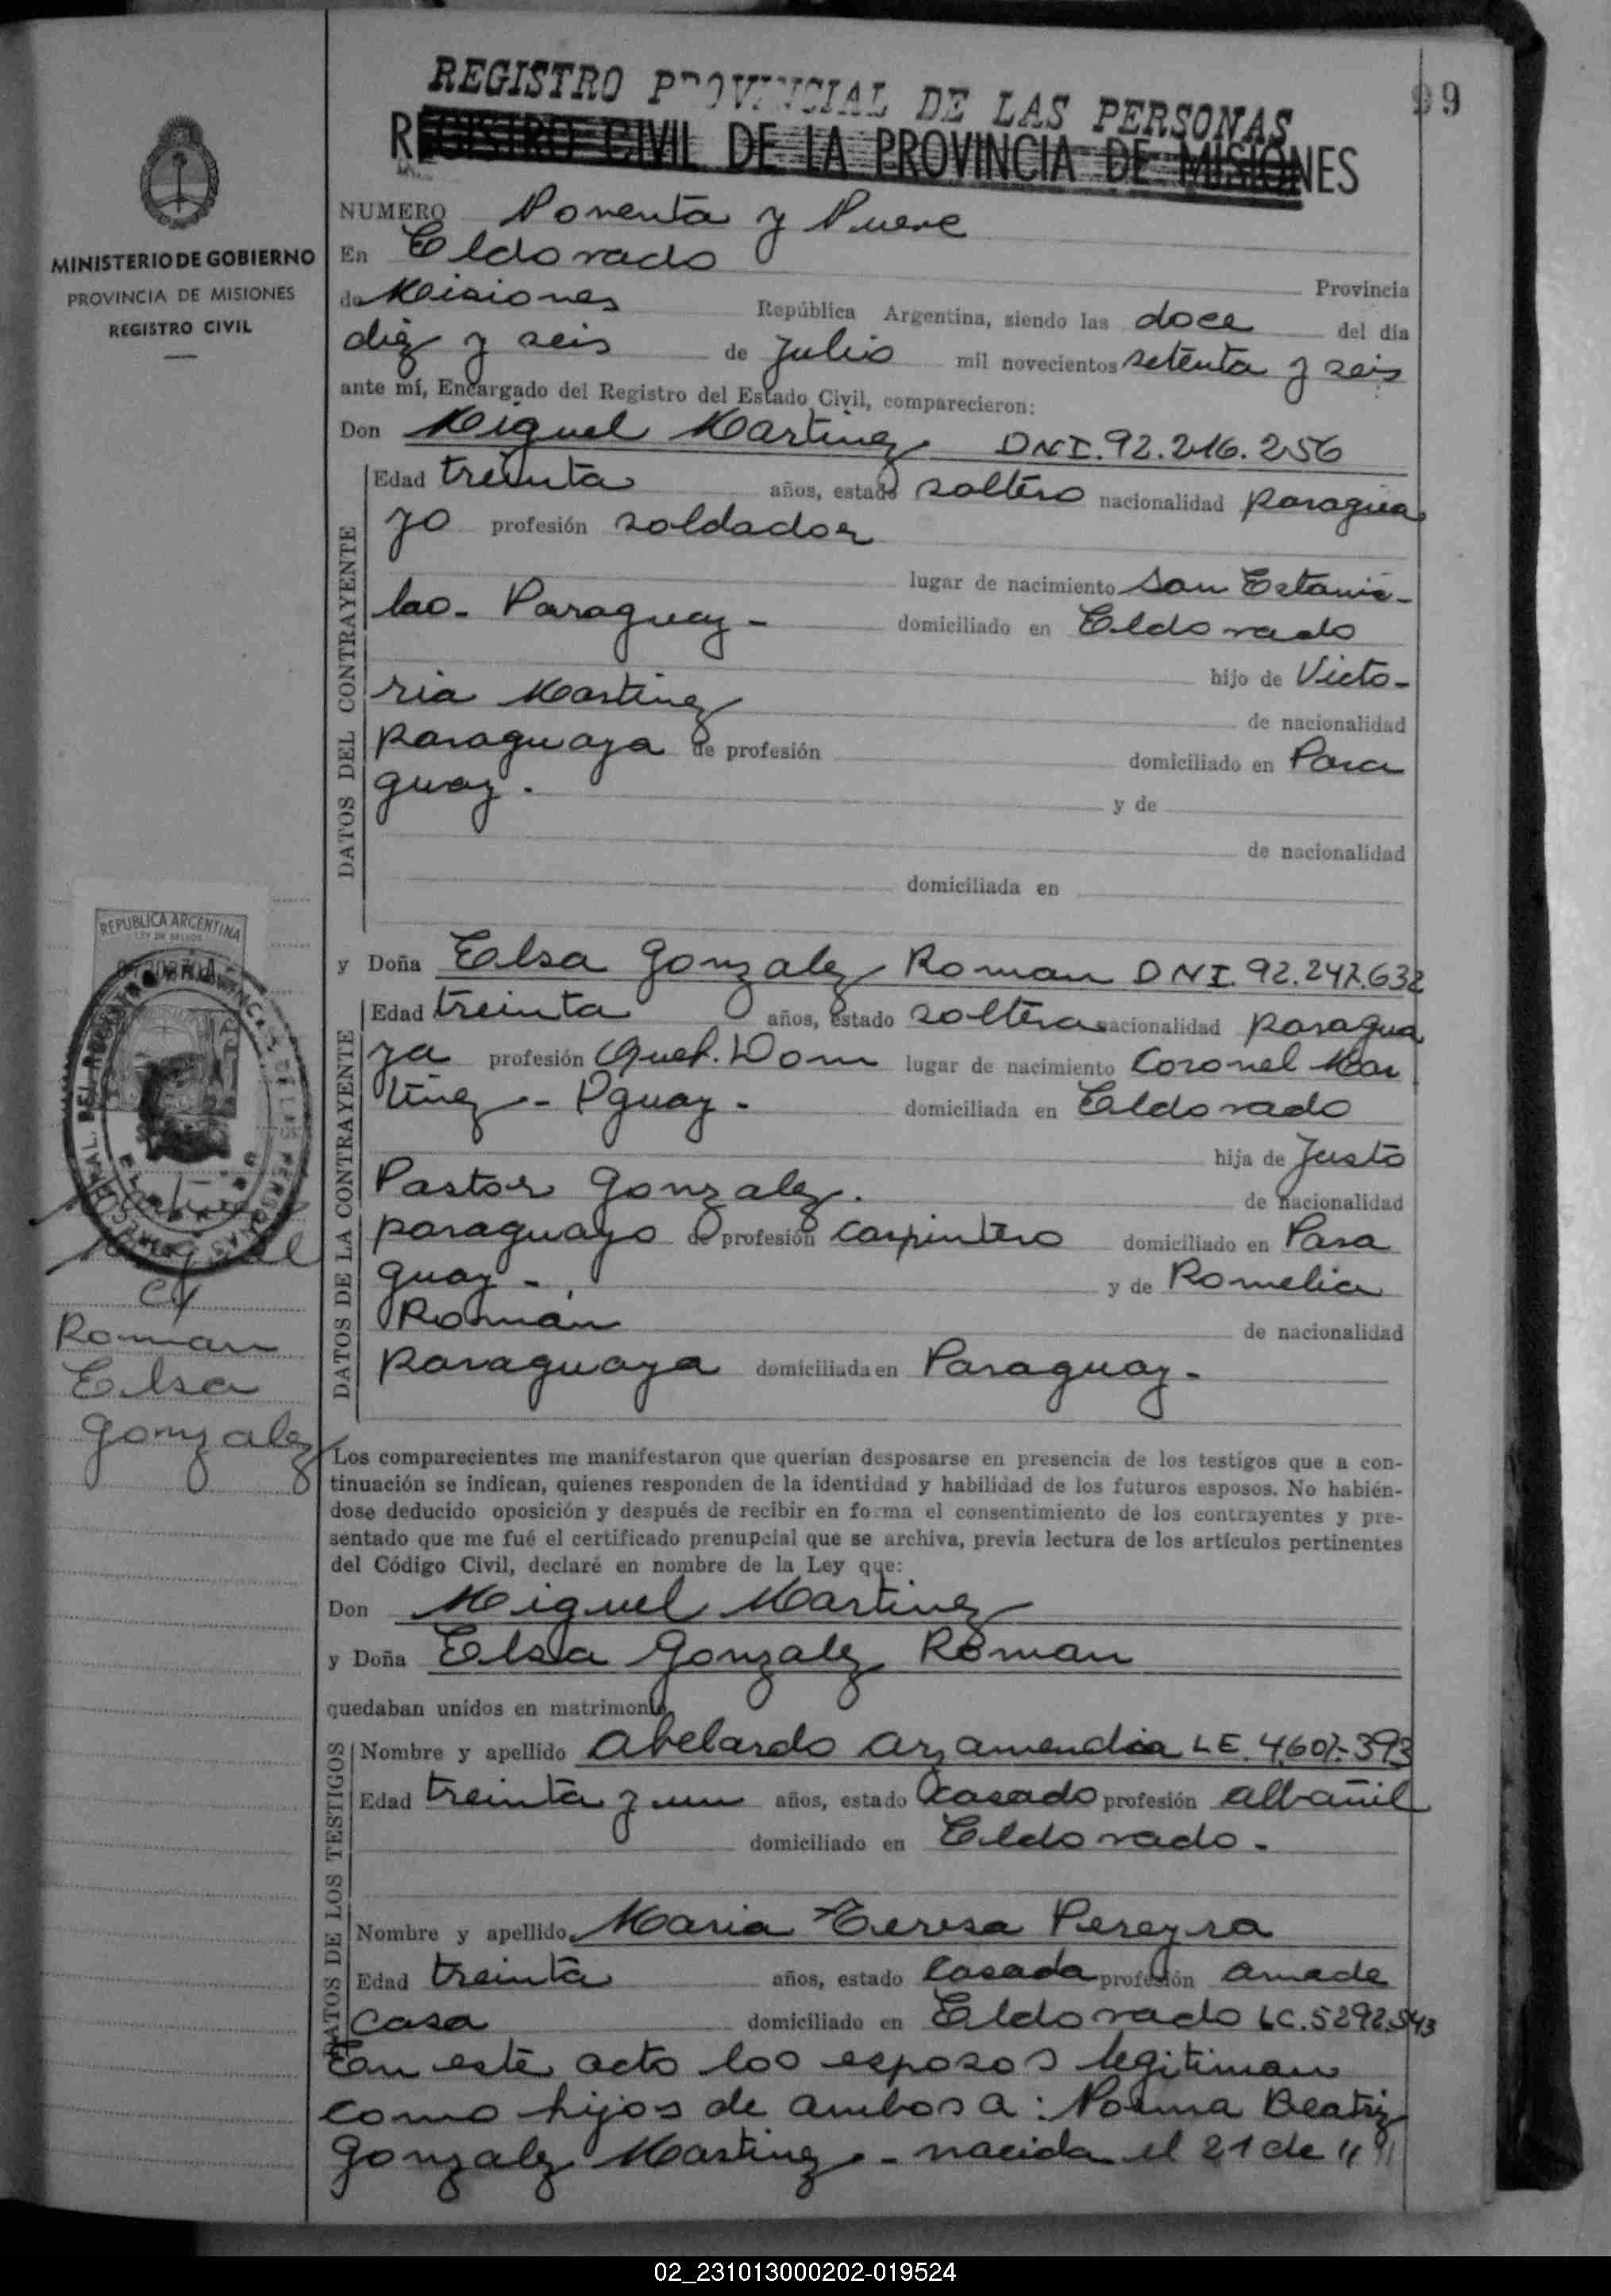 99
REGISTRO PROVINCIAL DE LAS PERSONAS
REGISTRO CIVIL DE LA PROVINCIA DE MISIONES
MINISTERIO DE GOBIERNO
PROVINCIA DE MISIONES
REGISTRO CIVIL
NUMERO Noventa y Nueve
En Eldorado Provincia
de Misiones República Argentina, siendo las doce del día
diez y seis de Julio mil novecientos setenta y seis
ante mí, Encargado del Registro del Estado Civil, comparecieron:
Don Miguel Martinez DNI. 92.216.256
DATOS DEL CONTRAYENTE
Edad treinta años, estado soltero nacionalidad paragua
yo profesión soldador
lugar de nacimiento San Estanis-
lao - Paraguay - domiciliado en Eldorado
hijo de Victo-
ria Martinez
de nacionalidad
paraguaya de profesión domiciliado en Para
guay. y de
de nacionalidad
domiciliada en
y Doña Elsa Gonzalez Roman DNI. 92.247.632
DATOS DE LA CONTRAYENTE
Edad treinta años, estado soltera nacionalidad paragua
ya profesión Quef. Dom lugar de nacimiento Coronel Mar
tinez - Pguay - domiciliada en Eldorado
hija de Justo
Pastor Gonzalez. de nacionalidad
paraguayo de profesión carpintero domiciliado en Para
guay - y de Romelia
Román de nacionalidad
paraguaya domiciliada en Paraguay -
REPUBLICA ARGENTINA
LEY DE SELLOS
Martinez
Miguel
c/
Roman
Elsa
Gonzalez
Los comparecientes me manifestaron que querían desposarse en presencia de los testigos que a con-
tinuación se indican, quienes responden de la identidad y habilidad de los futuros esposos. No habién-
dose deducido oposición y después de recibir en forma el consentimiento de los contrayentes y pre-
sentado que me fué el certificado prenupcial que se archiva, previa lectura de los artículos pertinentes
del Código Civil, declaré en nombre de la Ley que:
Don Miguel Martinez
y Doña Elsa Gonzalez Roman
quedaban unidos en matrimonio.
DATOS DE LOS TESTIGOS
Nombre y apellido Abelardo Arzamendia LE. 4.607.393
Edad treinta y un años, estado casado profesión albañil
domiciliado en Eldorado -
Nombre y apellido Maria Teresa Pereyra
Edad treinta años, estado casada profesión ama de
casa domiciliado en Eldorado LC. 5292.543
En este acto los esposos legitiman
como hijos de ambos a: Norma Beatriz
Gonzalez Martinez - nacida el 21 de
02_231013000202-019524